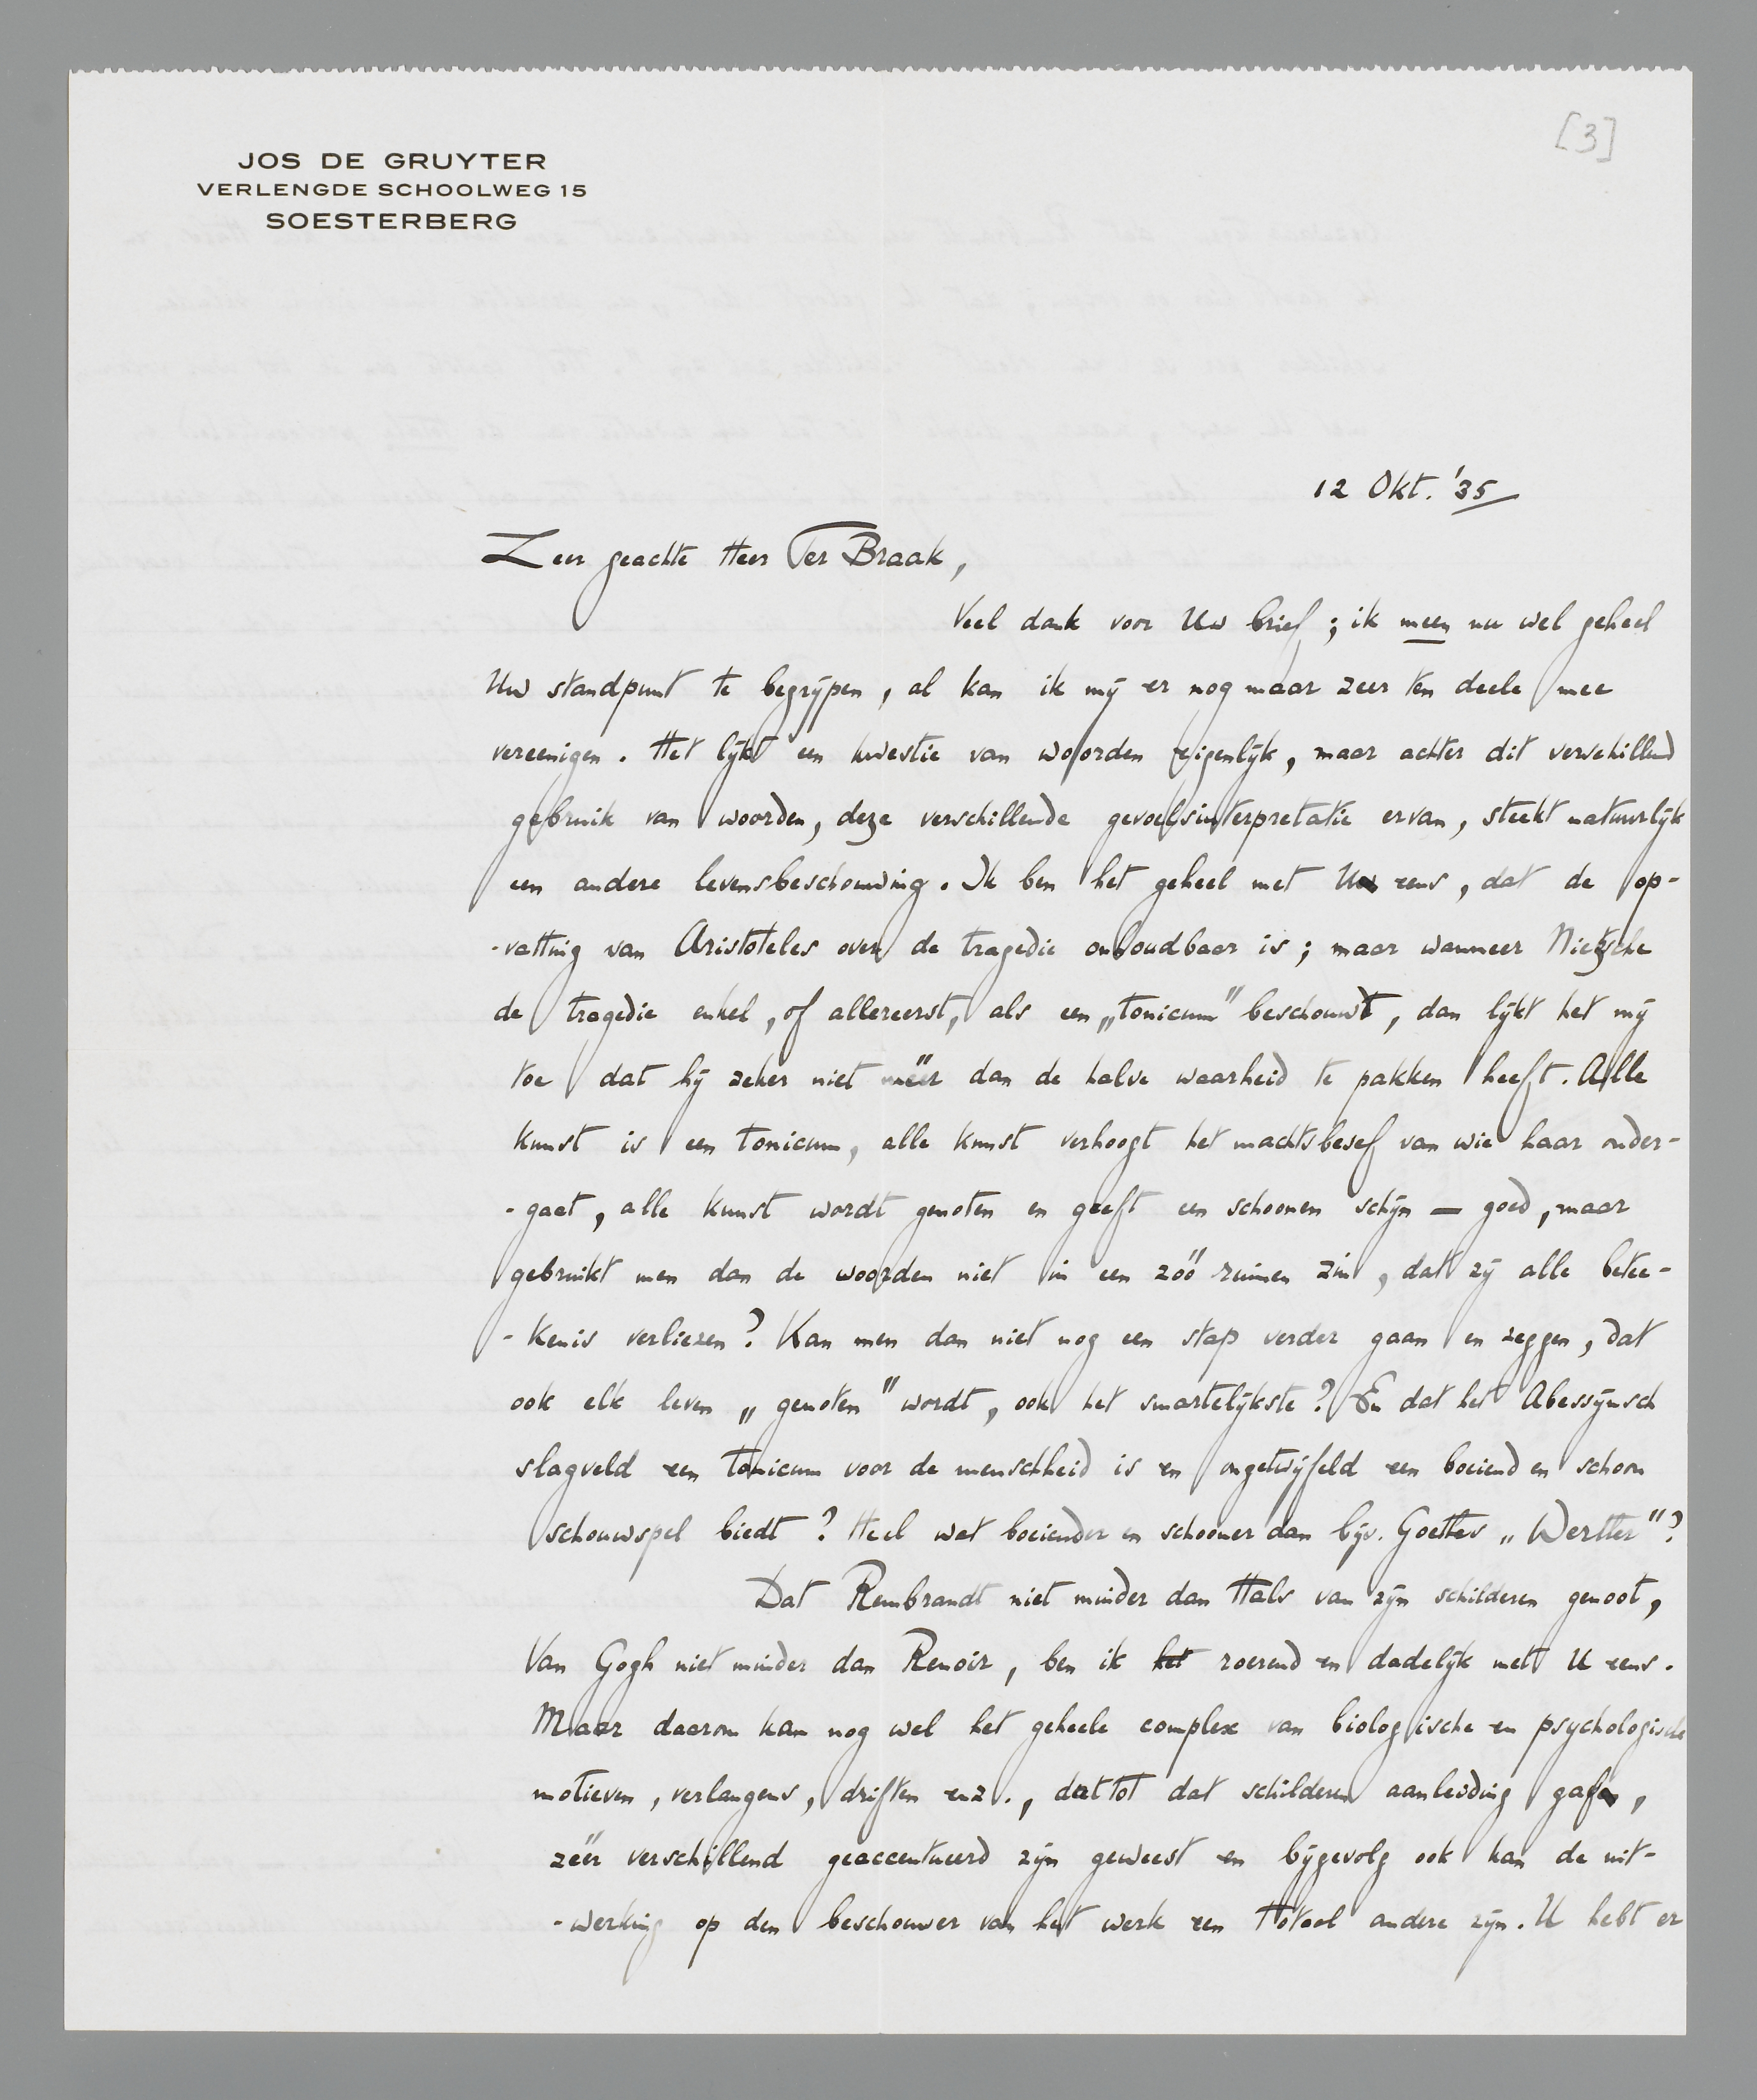 [3]
JOS DE GRUYTER
VERLENGDE SCHOOLWEG 15
SOESTERBERG
12 Okt. '35
Zeer geachte Heer Ter Braak,
Veel dank voor Uw brief; ik meen nu wel geheel
Uw standpunt te begrijpen, al kan ik mij er nog maar zeer ten deele mee
vereenigen. Het lijkt een kwestie van woorden eigenlijk, maar achter dit verschillend
gebruik van woorden, deze verschillende gevoelsinterpretatie ervan, steekt natuurlijk
een andere levensbeschouwing. Ik ben het geheel met U eens, dat de op-
-vatting van Aristoteles over de tragedie onhoudbaar is; maar wanneer Nietzsche
de tragedie enkel, of allereerst, als een „tonicum" beschouwt, dan lijkt het mij
toe dat hij zeker niet méér dan de halve waarheid te pakken heeft. Alle
kunst is een tonicum, alle kunst verhoogt het machtsbesef van wie haar onder-
-gaat, alle kunst wordt genoten en geeft een schoonen schijn — goed, maar
gebruikt men dan de woorden niet in een zóó ruimen zin, dat zij alle betee-
-kenis verliezen? Kan men dan niet nog een stap verder gaan en zeggen, dat
ook elk leven „genoten" wordt, ook het smartelijkste? En dat het Abessijnsch
slagveld een tonicum voor de menschheid is en ongetwijfeld een boeiend en schoon
schouwspel biedt? Heel wat boeiender en schooner dan bijv. Goethes „Werther"?
Dat Rembrandt niet minder dan Hals van zijn schilderen genoot,
Van Gogh niet minder dan Renoir, ben ik het roerend en dadelijk met U eens.
Maar daarom kan nog wel het geheele complex van biologische en psychologische
motieven, verlangens, driften enz., dat tot dat schilderen aanleiding gaf,
zéér verschillend geaccentueerd zijn geweest en bijgevolg ook kan de uit-
-werking op den beschouwer van het werk een totaal andere zijn. U hebt er